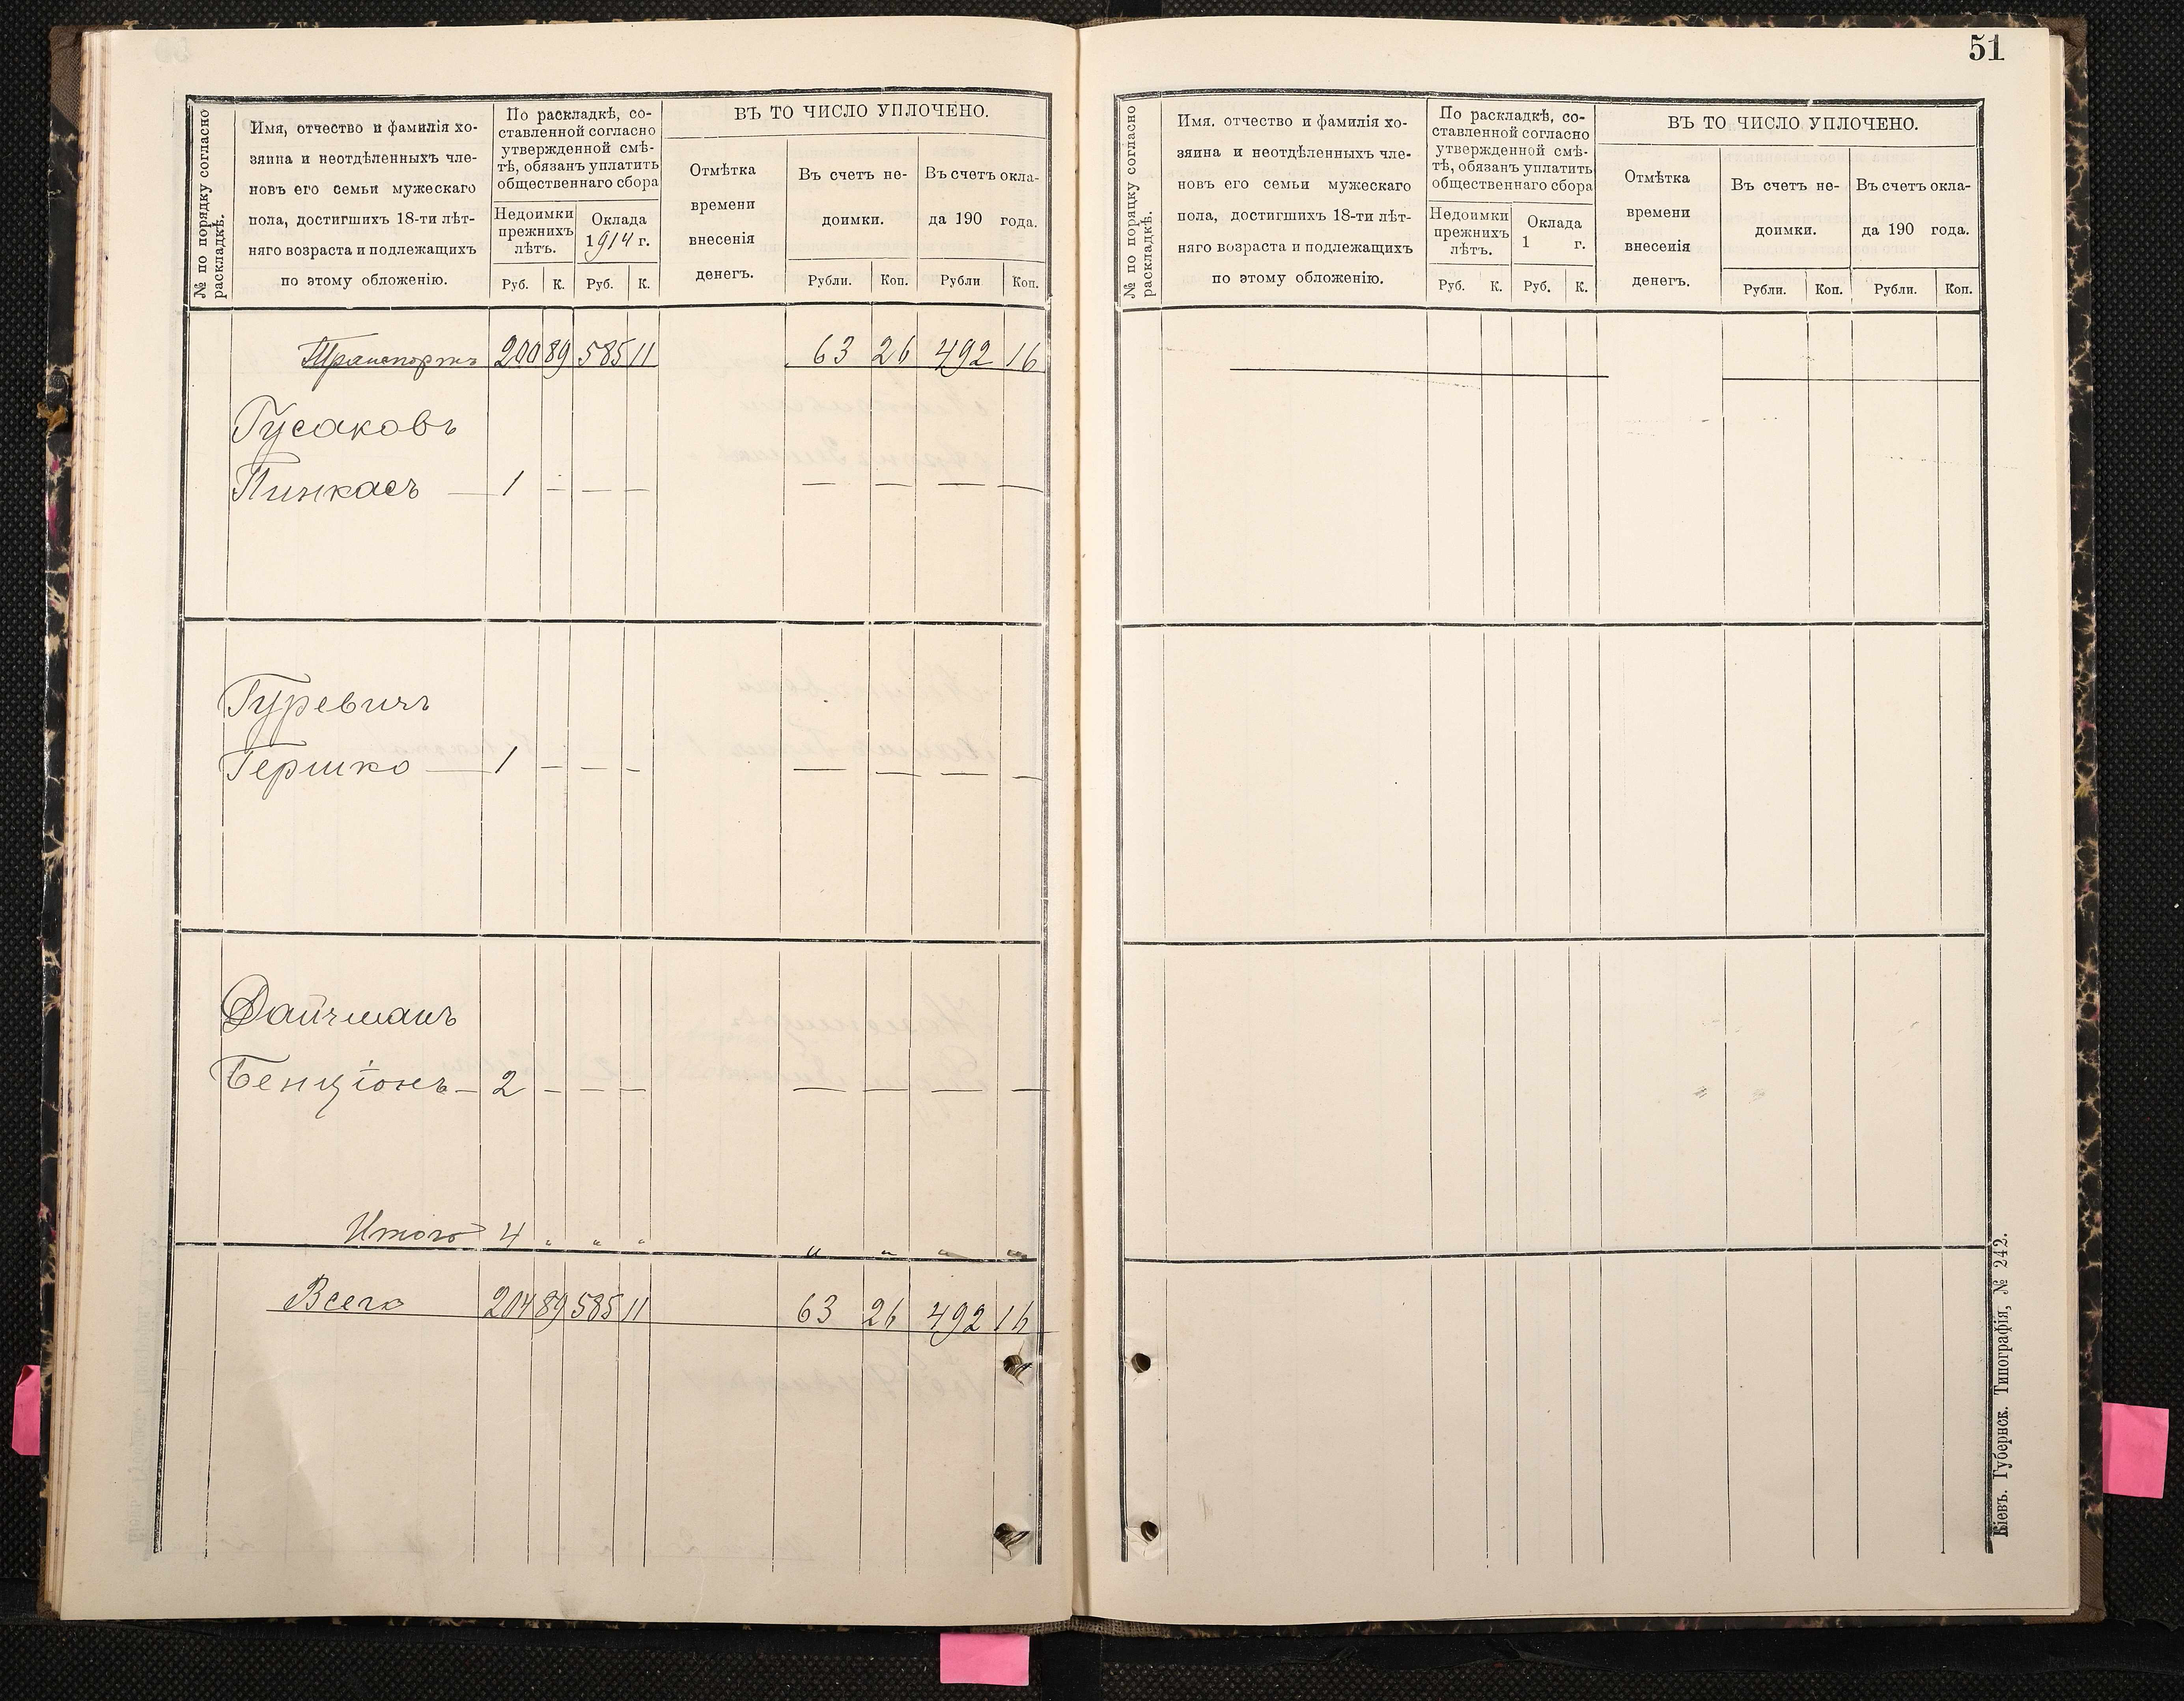 № по порядку согласно
раскладкѣ.
Имя, отчество и фамилія хо-
зяина и неотдѣленныхъ чле-
новъ его семьи мужескаго
пола, достигшихъ 18-ти лѣт-
няго возраста и подлежащихъ
по этому обложенію.
По раскладкѣ, со-
ставленной согласно
утвержденной смѣ-
тѣ, обязанъ уплатить
общественнаго сбора
Недоимки
прежнихъ
лѣтъ.
Оклада
1914 г.
Руб. К. Руб. К.
ВЪ ТО ЧИСЛО УПЛОЧЕНО.
Отмѣтка
времени
внесенія
денегъ.
Въ счетъ не-
доимки.
Въ счетъ окла-
да 190 года.
Рубли. Коп. Рубли Коп.
Транспортъ 200 89 585 11 63 26 492 16
Гусаковъ
Пинкасъ — 1 — — — — — — —
Гуревичъ
Гершко — 1 — — — — — — —
Дайчманъ
Бенціонъ — 2 — — — — — — —
Итого 4 " " " " " " "
Всего 204 89 585 11 63 26 492 16
51
№ по порядку согласно
раскладкѣ.
Имя. отчество и фамилія хо-
зяина и неотдѣленныхъ чле-
новъ его семьи мужескаго
пола, достигшихъ 18-ти лѣт-
няго возраста и подлежащихъ
по этому обложенію.
По раскладкѣ, со-
ставленной согласно
утвержденной смѣ-
тѣ, обязанъ уплатить
общественнаго сбора
Недоимки
прежнихъ
лѣтъ.
Оклада
1 г.
Руб. К. Руб. К.
ВЪ ТО ЧИСЛО УПЛОЧЕНО.
Отмѣтка
времени
внесенія
денегъ.
Въ счетъ не-
доимки.
Въ счетъ окла-
да 190 года.
Рубли. Коп. Рубли. Коп.
Кіевъ. Губернск. Типографія, № 242.